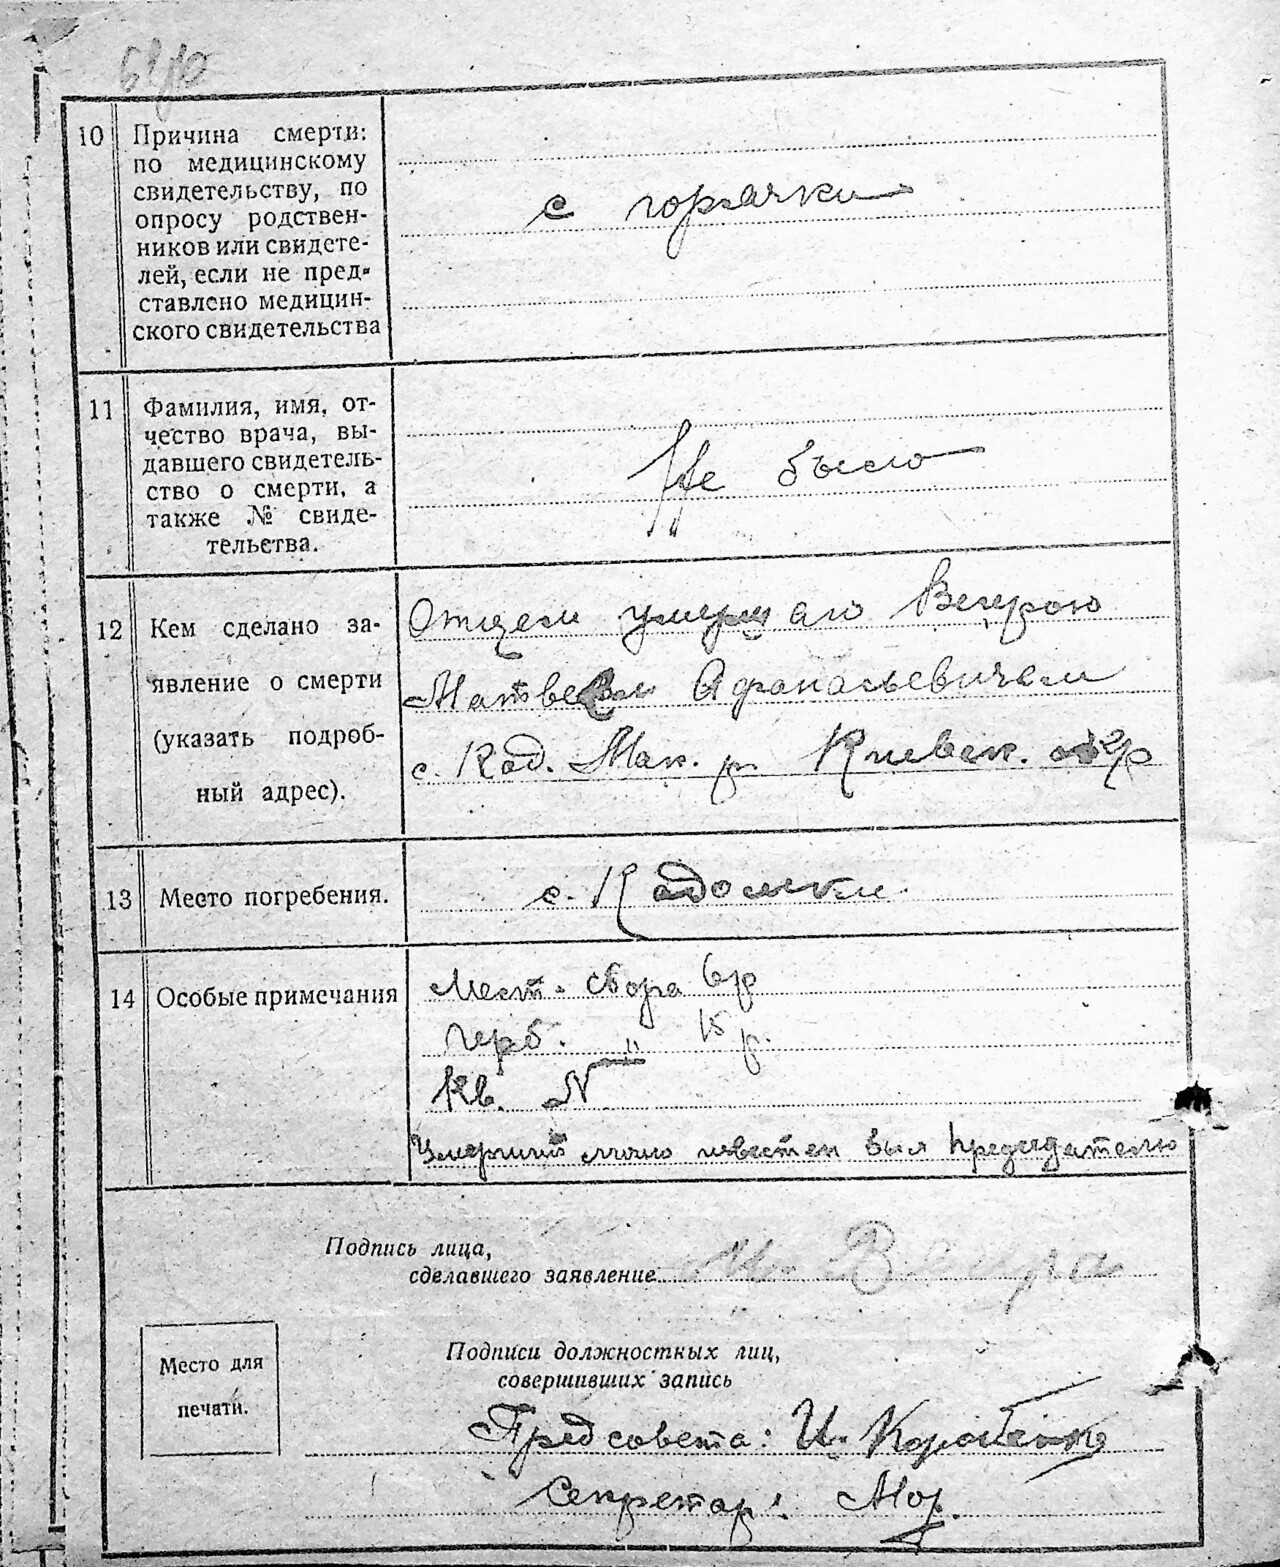 10 Причина смерти:
по медицинскому
свидетельству, по
опросу родствен-
ников или свидете-
лей, если не пред-
ставлено медицин-
ского свидетельства
с горячки
11 Фамилия, имя, от-
чество врача, вы-
давшего свидетель-
ство о смерти, а
также № свиде-
тельства.
Не было
12 Кем сделано за-
явление о смерти
(указать подроб-
ный адрес).
Отцем умершаго
Матвеем Афанасьевичем
с. Кад. Мак. р. Киевск.
13 Место погребения.
с. Кадомки
14 Особые примечания
Мест. сбора 6 р
Герб. " 15 р.
Кв. N
Умерший лично известен был Председателю
Подпись лица,
сделавшего заявление
Место для
печати.
Подписи должностных лиц,
совершивших запись
Предсовета: И.
Секретар: Мор.